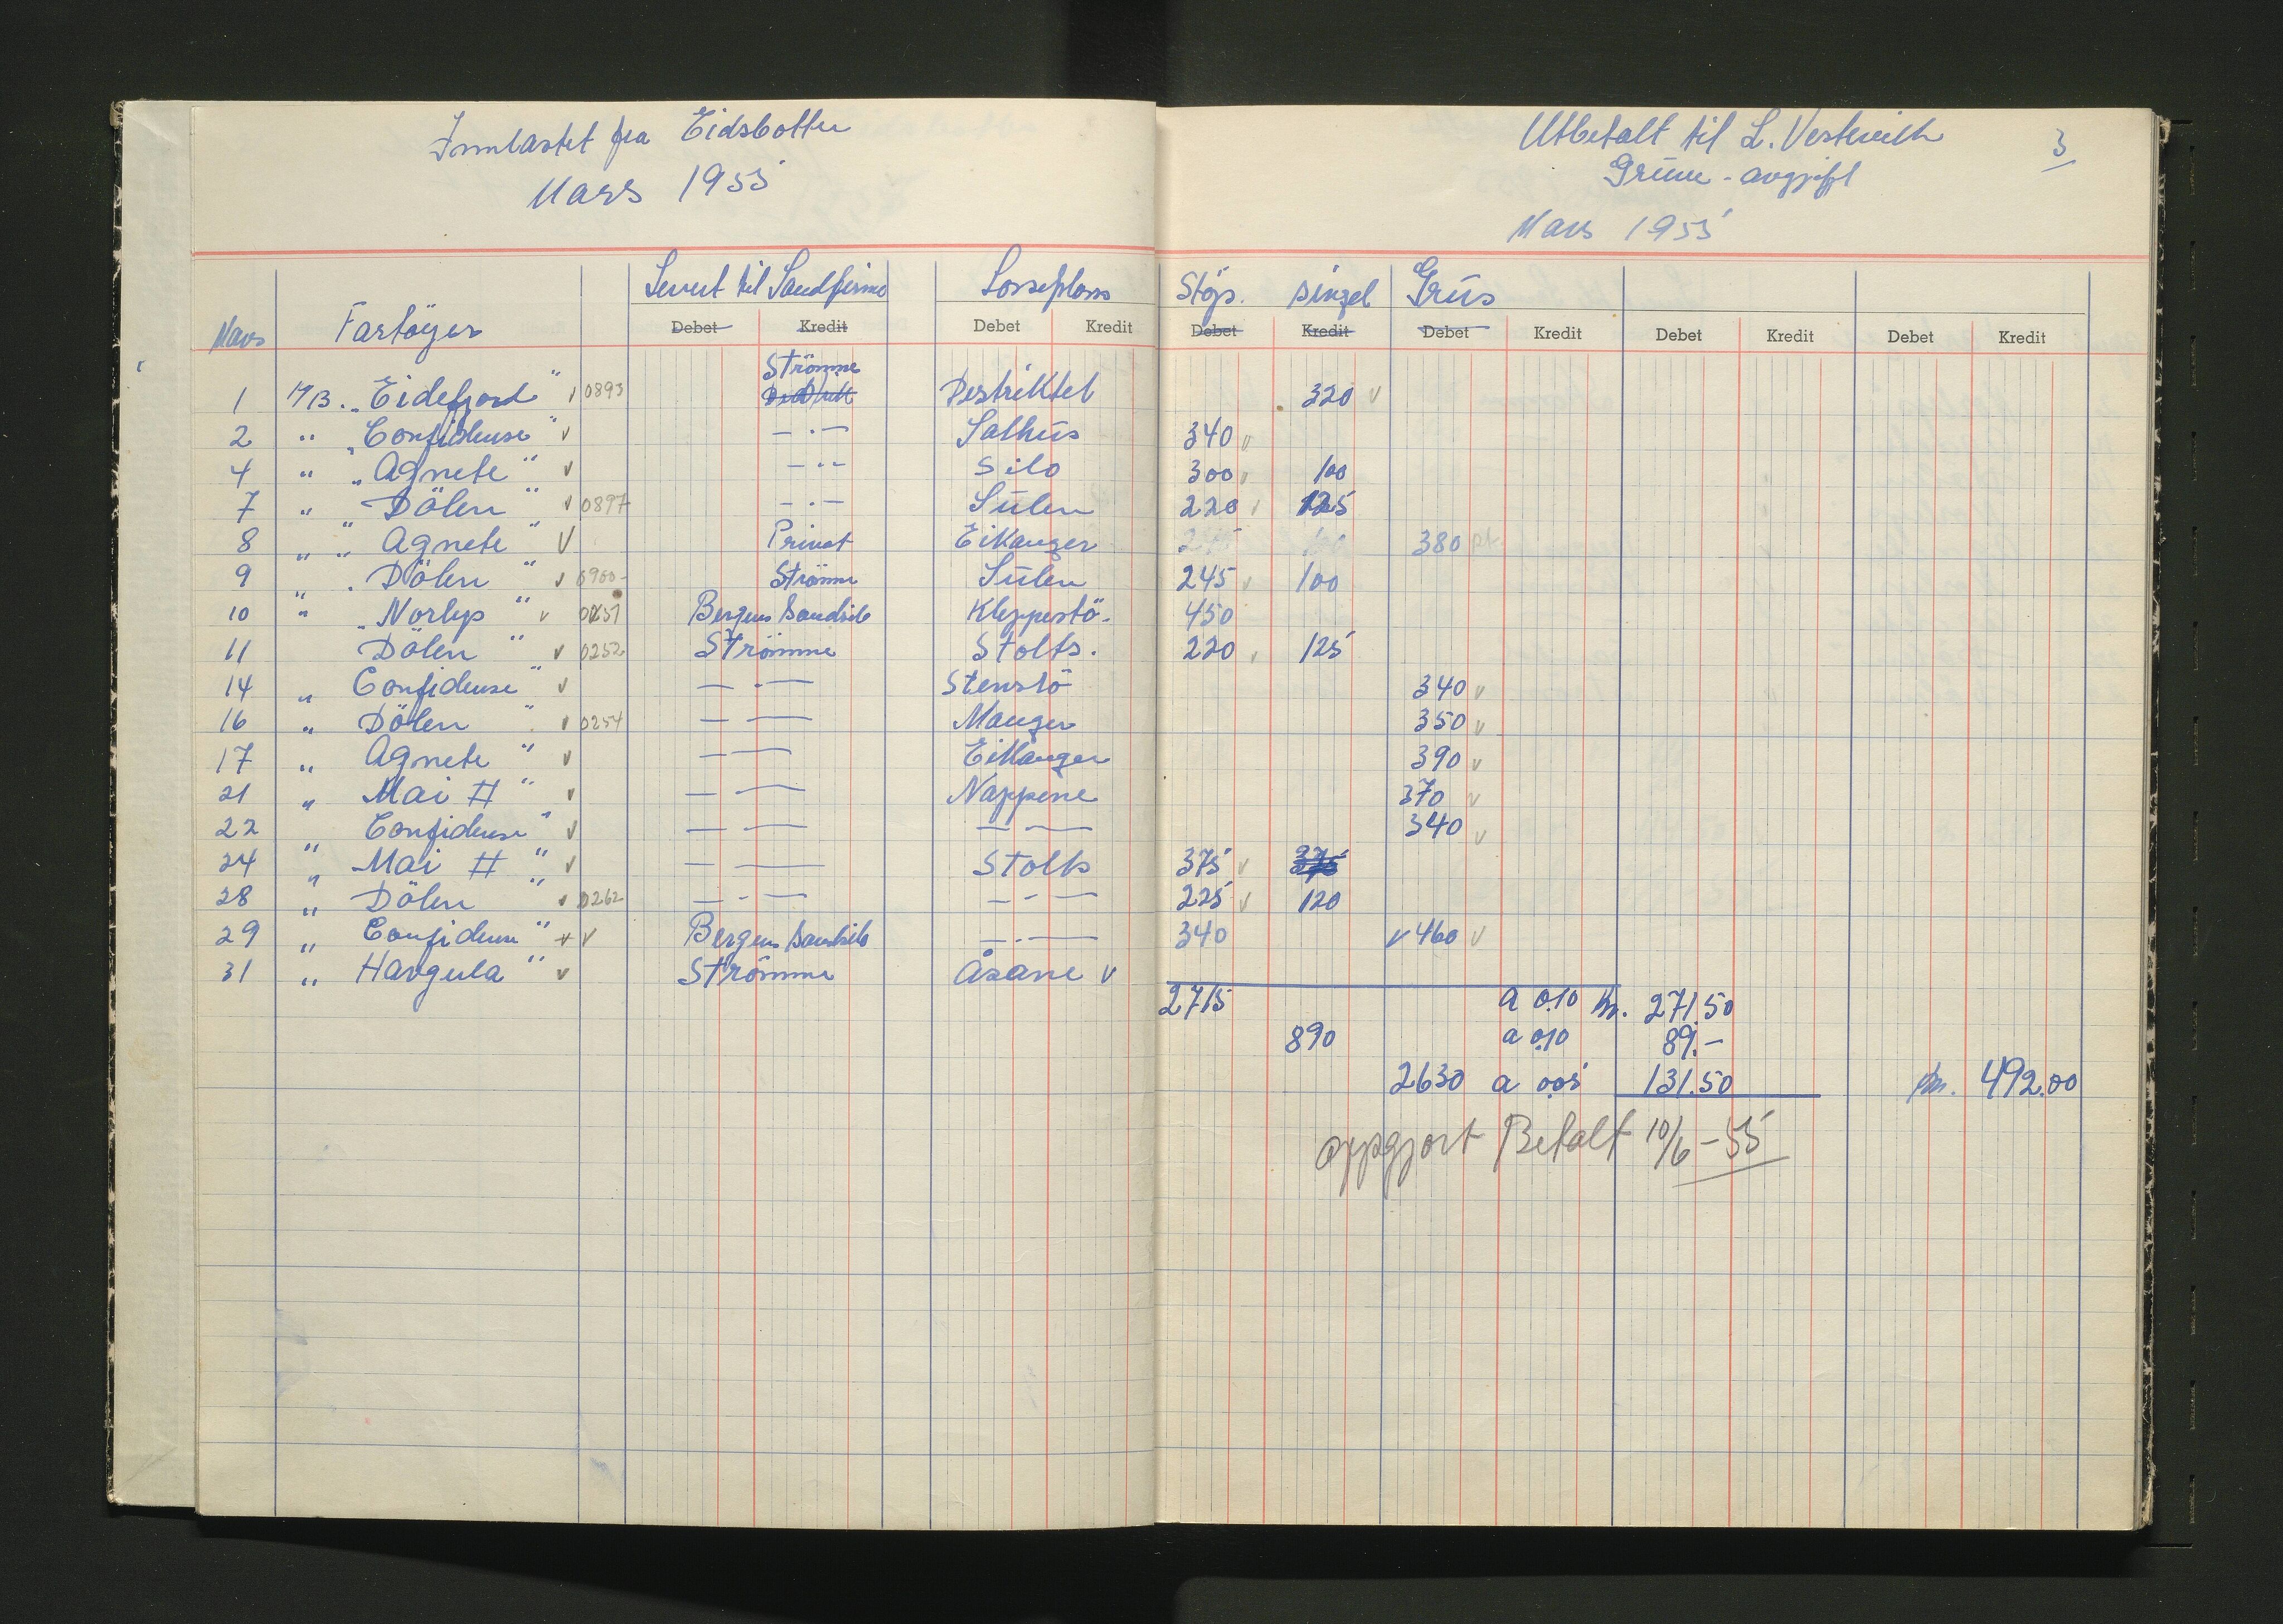 Innlastet fra Eidsbotten
Mars 1955
Levert til Sandfirma Losseplass
Mars Fartöyer Debet Kredit Debet Kredit
Strömme
1 M/B. „Eidefjord" v 0893 Destriktet
2 " „Confidense" v — · — Salhus
4 " „Agnete" v — " — Silo
7 " Dölen " v 0897 — · — Sulen
8 " " Agnete " V Privat Eikanger
9 „ . Dölen " v 0900- Strömme Sulen
10 " „Norlys" v 0251 Bergens Sandsilo Kleppestö.
11 Dölen " v 0252 Strömme Stolts.
14 „ Confidense" v — · — Stenstö
16 „ Dölen " v 0254 — — Manger
17 „ Agnete " v — — Eikanger
21 „ Mai II " v — — Nappene
22 „ Confidense" v — — — —
24 „ Mai II " v — — Stolts
28 „ Dölen " v 0262 — - — — - —
29 „ Confidense" v v Bergens Sandsilo — · —
31 „ Havgula " v Strömme Åsane v
Utbetalt til L. Vestrevik 3
Gruve-avgift
Mars 1955
Stöps. singel Grus
Debet Kredit Debet Kredit Debet Kredit Debet Kredit
320 v
340 v
300 v 100
220 v 125
380 pt.
245 v 100
450
220 v 125
340 v
350 v
390 v
370 v
340 v
375 v 375
225 v 120
340 v 460 v
2715 a 0.10 kr. 271.50
890 a 0.10 89.-
2630 a 0.05 131.50 kr. 492.00
oppgjort Betalt 10/6-55